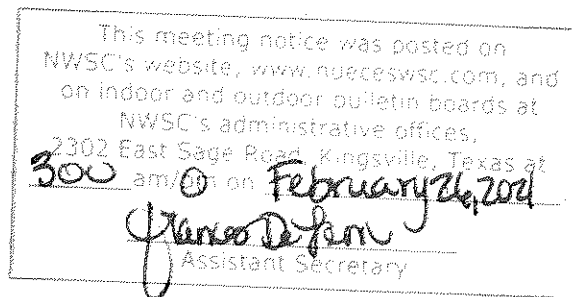 This meeting notice was posted on
NWSC's website, www.nueceswsc.com, and
on indoor and outdoor bulletin boards at
NWSC's administrative offices,
2302 East Sage Road, Kingsville, Texas at
300 am/pm on February 26, 2021
Assistant Secretary